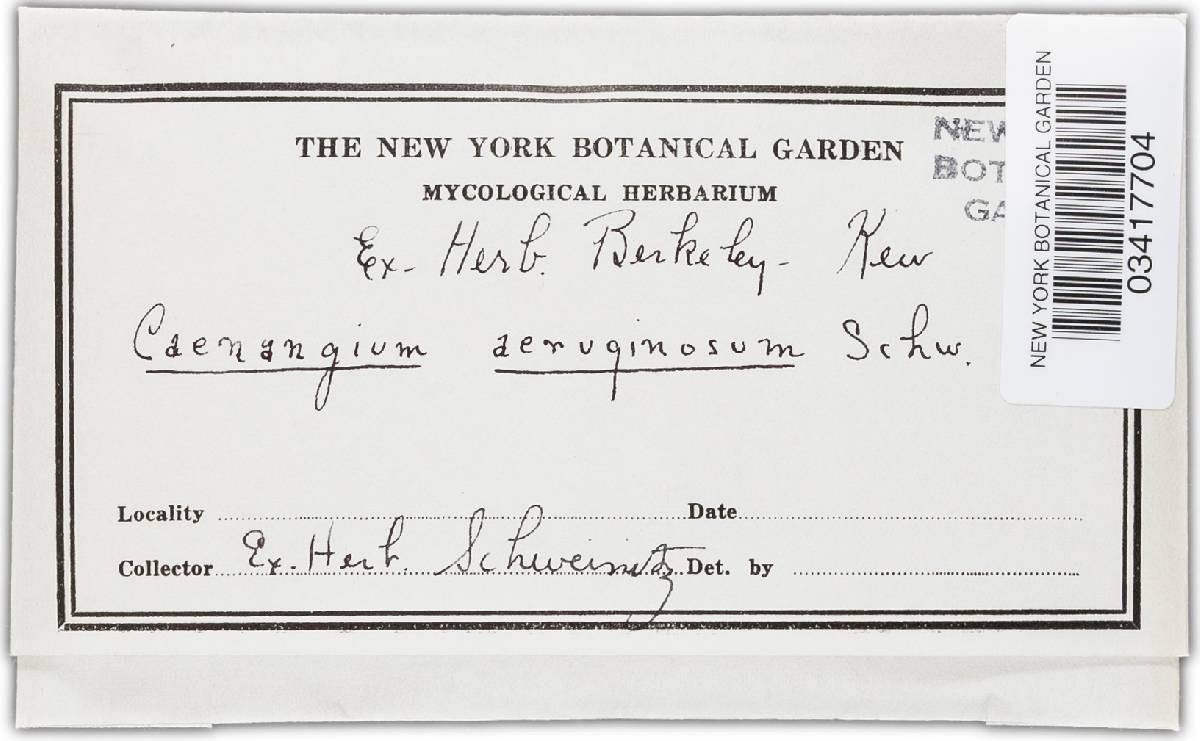 THE NEW YORK BOTANICAL GARDEN
MYCOLOGICAL HERBARIUM
Ex- Herb. Berkeley- Kew
Caenangium aeruginosum Schw.
Locality Date
Collector Ex. Herb. Schweinitz Det. by
NEW
BOT
GA
NEW YORK BOTANICAL GARDEN
03417704